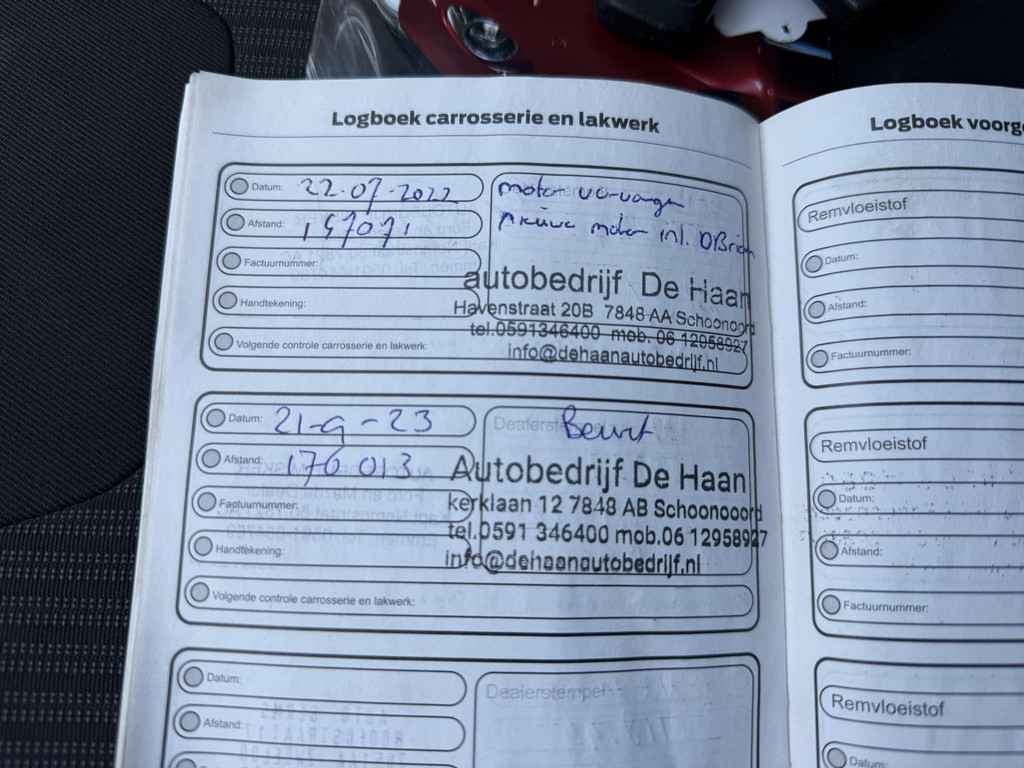 Logboek carrosserie en lakwerk
Datum: 22-07-2022
Afstand: 157071
Factuurnummer:
Handtekening:
Volgende controle carrosserie en lakwerk:
motor vervangen
nieuwe motor inl.
autobedrijf De Haan
Havenstraat 20B 7848 AA Schoonoord
tel.0591346400 mob. 06 12958927
info@dehaanautobedrijf.nl
Datum: 21-9-23
Afstand: 176013
Factuurnummer:
Handtekening:
Volgende controle carrosserie en lakwerk:
Dealerstempel
Beurt
Autobedrijf De Haan
kerklaan 12 7848 AB Schoonooord
tel.0591 346400 mob.06 12958927
info@dehaanautobedrijf.nl
Datum:
Afstand:
Dealerstempel
Logboek
Remvloeistof
Datum:
Afstand:
Factuurnummer:
Remvloeistof
Datum:
Afstand:
Factuurnummer:
Remvloeistof
Datum: